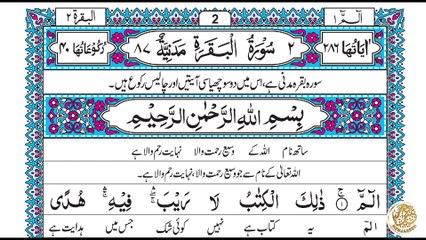 الٓمّٓ ١ 2 البقرة ٢
اٰيَاتُهَا ٢٨٦ ٢ سُوْرَةُ الْبَقَرَةِ مَدَنِيَّةٌ ٨٧ رُكُوْعَاتُهَا ٤٠
سورہ بقرہ مدنی ہے، اس میں دو سو چھیاسی آیتیں اور چالیس رکوع ہیں۔
بِسْمِ اللهِ الرَّحْمٰنِ الرَّحِيْمِ
ساتھ نام اللہ کے وسیع رحمت والا نہایت رحم والا ہے
اللہ تعالیٰ کے نام سے جو وسیع رحمت والا، نہایت رحم والا ہے۔
الٓمّٓ ۚ ١ ذٰلِكَ الْكِتٰبُ لَا رَيْبَ ۛ فِيْهِ ۛ هُدًى
الٓمّ یہ کتاب ہے نہیں کوئی شک جس میں ہدایت ہے